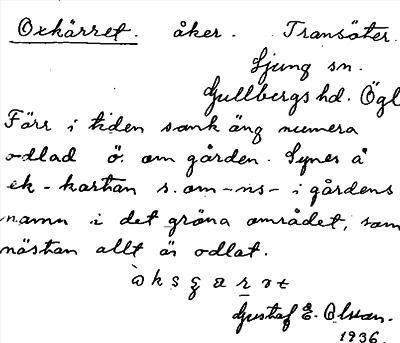 Oxkärret. åker. Transäter.
Ljung sn.
Gullbergs hd. Ögl
Förr i tiden sank äng numera
odlad ö. om gården. Synes å
ek-kartan s.om -ns- i gårdens
namn i det gröna området, som
nästan allt är odlat.
Gustaf E. Olsson.
1936.